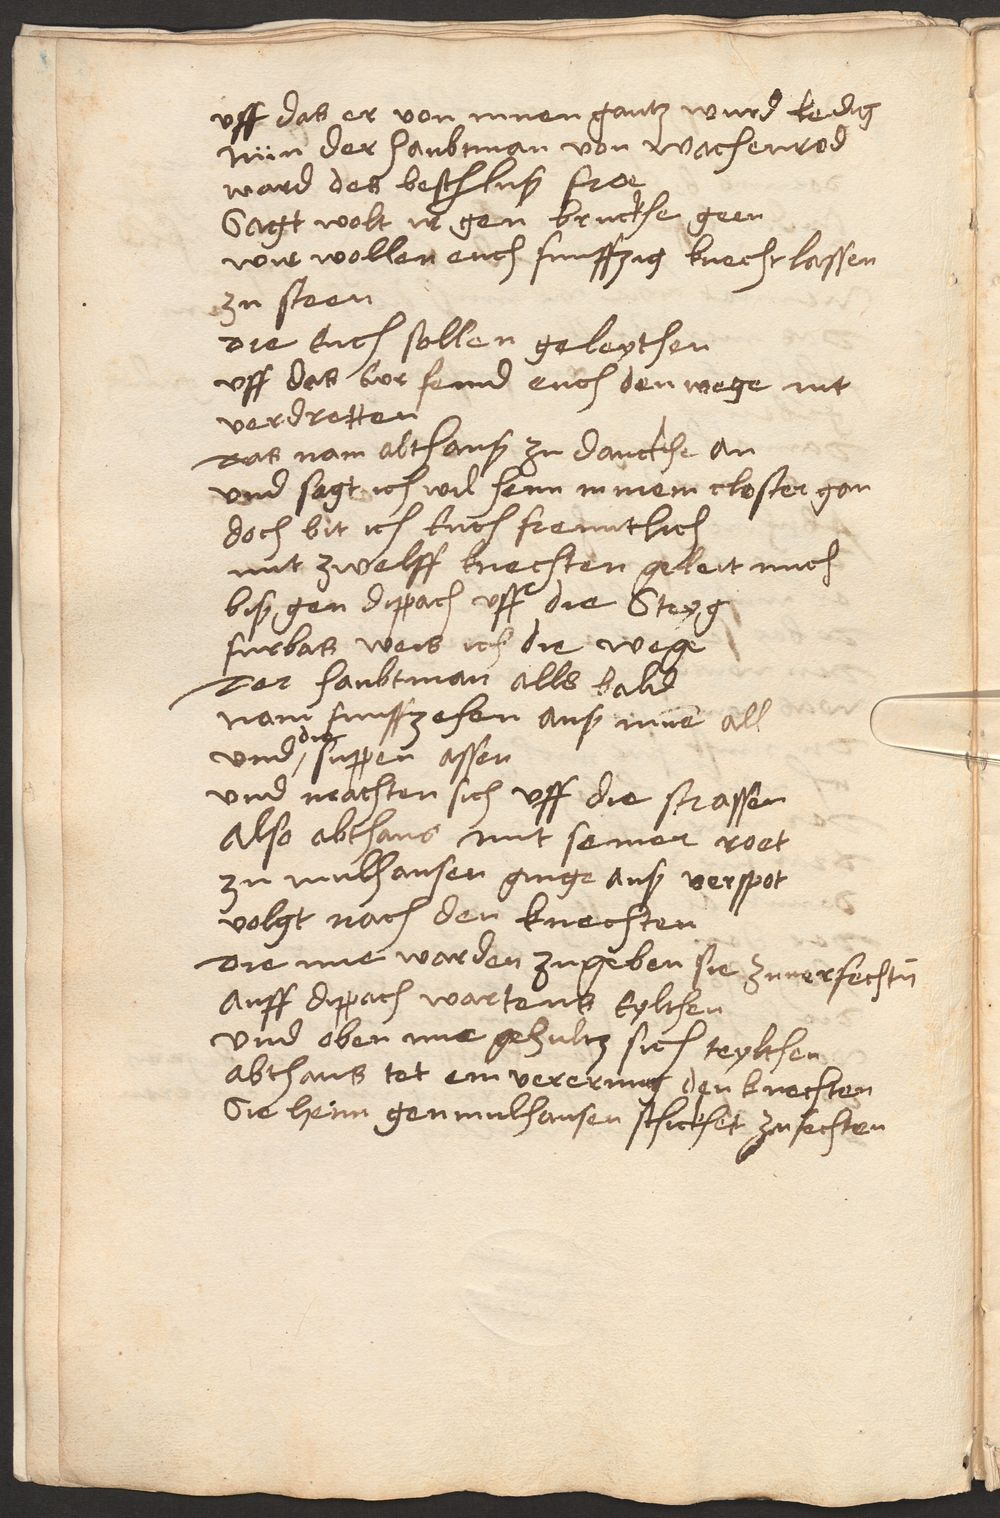 uff das er von innen gantz wurd ledig
Nün der haubtman von Wachenrod
ward des beschluß froe
Sagt wolt ir gen bruckhe geen
wir wollen euch funffzig knecht lassen
zu steen
Die Euch sollen geleythen
uff das eur feind euch den wege nit
verdretten
Das nam abt hanß zu danckhe an
und sagt ich wil heim in mein closter gan
doch bit ich Euch freuntlich
mit zwelff knechten geleit mich
biß gen dippach uff die Steyg
furbas weis ich die wege
Der haubtman alls bald
nam funffzehen auß inne all
und die suppen assen
und machten sich uff die strassen
Also abt hans mit seiner roet
zu mulhausen ginge auß verspot
volgt nach den knechten
Die ime warden zugeben sie zuverfechtn
Auff dippach wartens Eylthen
und oben ime gehultz sich teylthen
abt hans tet ein vererung den knechten
Sie heim gen mulhausen schickhet zu fechten